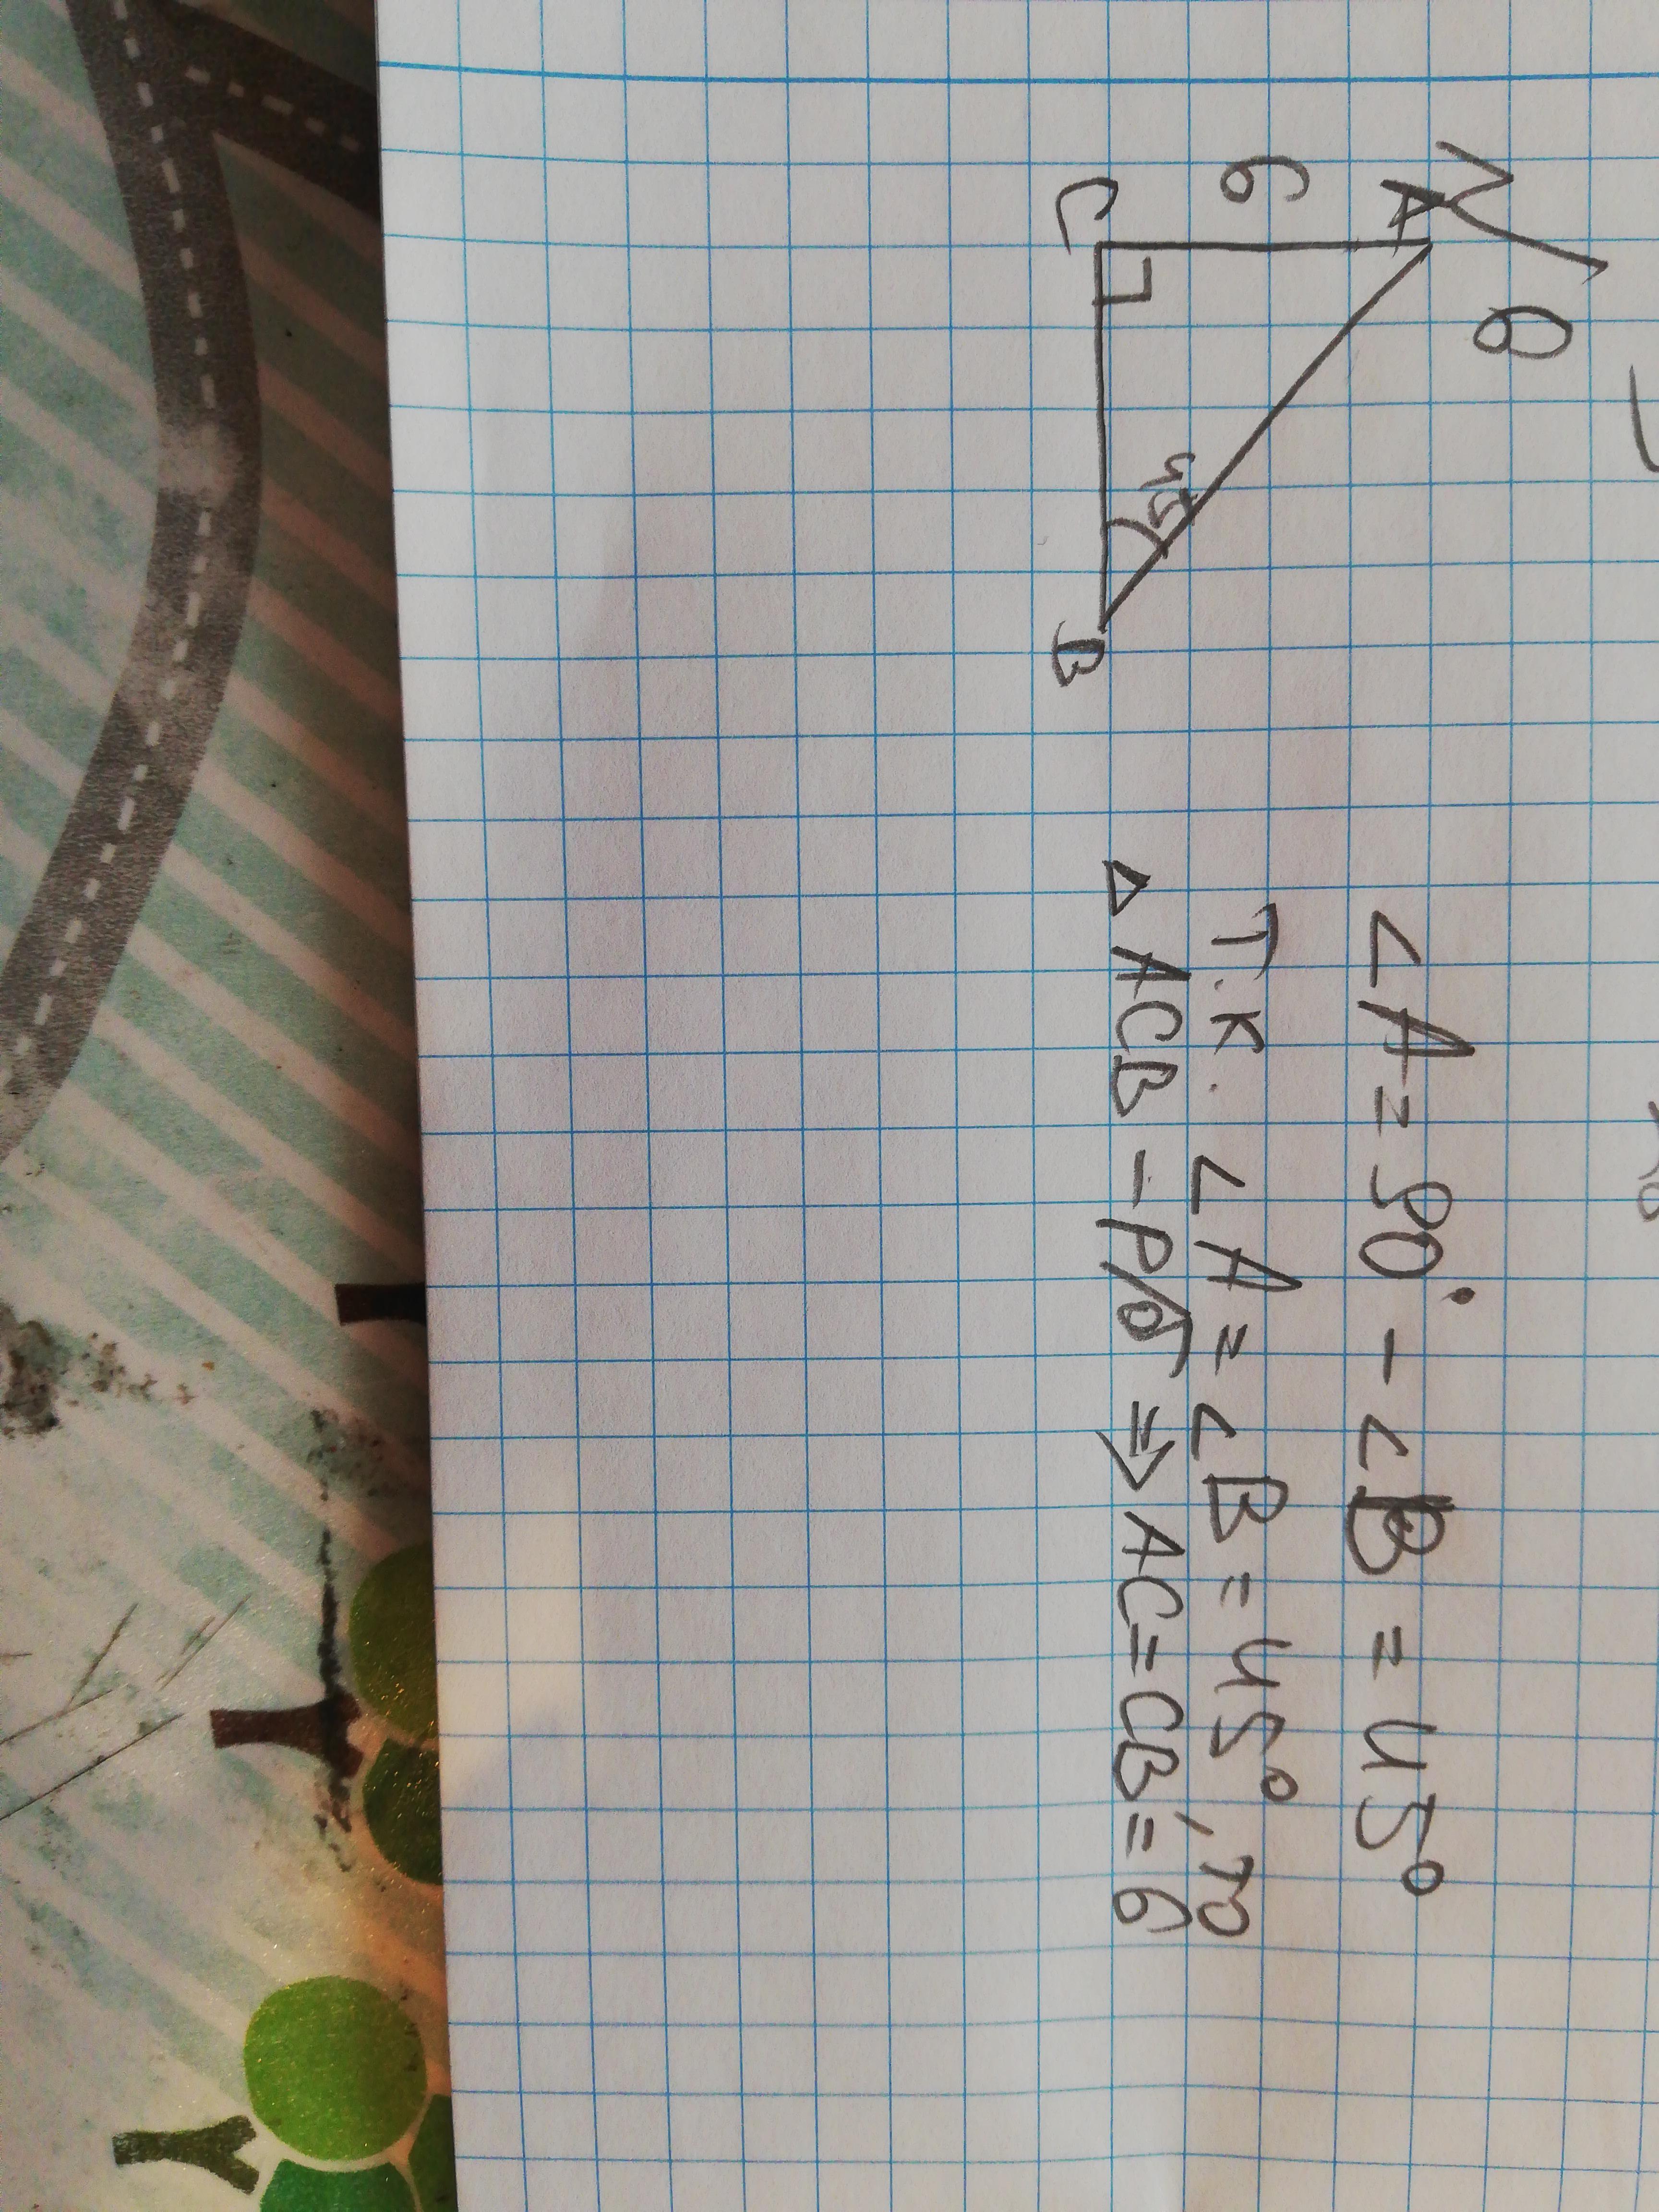 √ 8
A
6
C
45
B
∠A = 90° - ∠B = 45°
Т.К. ∠A = ∠B = 45°, ТО
△ ACB - Р/б ⇒ AC = CB = 6